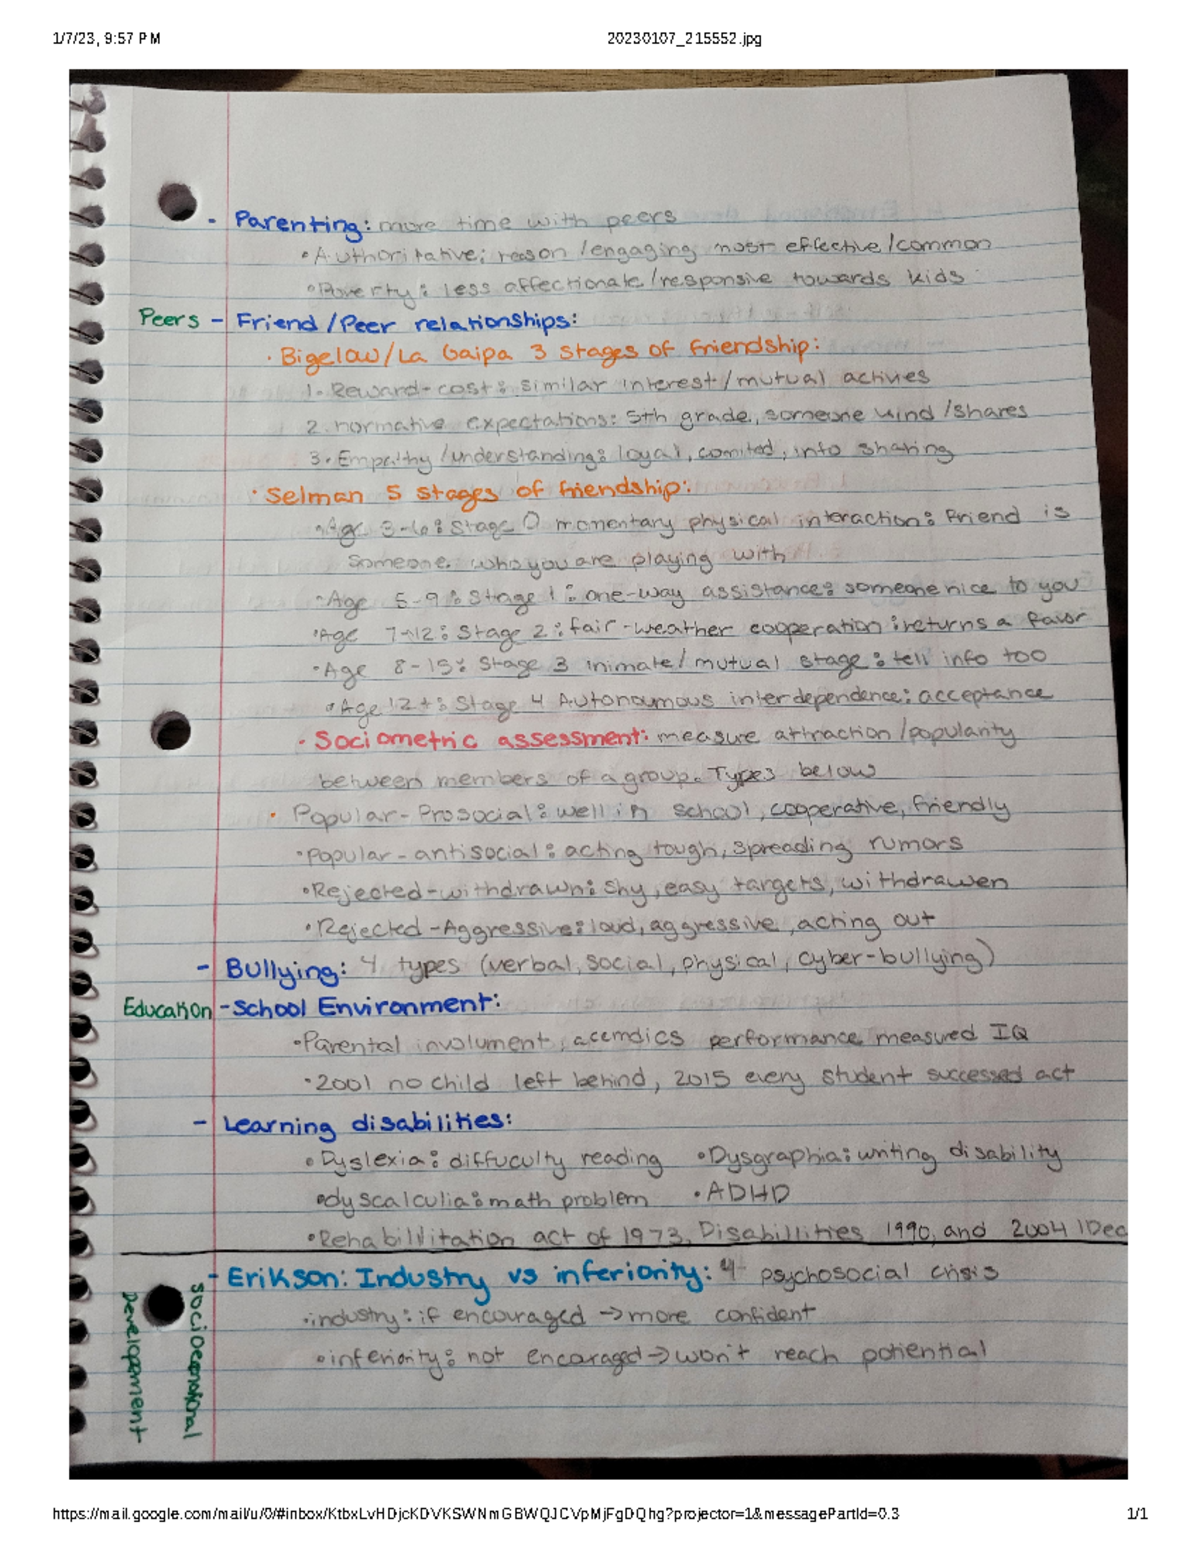 1/7/23, 9:57 PM 20230107_215552.jpg
- Parenting: more time with peers
• Authoritative: reason/engaging most effective/common
• Poverty: less affectionate/responsive towards kids
Peers - Friend/Peer relationships:
• Bigelow/La Gaipa 3 stages of friendship:
1. Reward-cost: similar interest/mutual actives
2. normative expectations: 5th grade, someone kind/shares
3. Empathy/understanding: loyal, comited, into sharing
• Selman 5 stages of friendship:
• Age 3-6: Stage 0 momentary physical interaction: Friend is
someone who you are playing with
• Age 5-9: Stage 1: one-way assistance: someone nice to you
• Age 7-12: Stage 2: fair-weather cooperation: returns a favor
• Age 8-15: Stage 3 inimate/mutual stage: tell info too
• Age 12+: Stage 4 Autonoumous interdependence: acceptance
• Sociometric assessment: measure attraction/popularity
between members of a group. Types below
• Popular-Prosocial: well in school, cooperative, friendly
• Popular-antisocial: acting tough, spreading rumors
• Rejected-withdrawn: shy, easy targets, withdrawen
• Rejected-Aggressive: loud, aggressive, acting out
- Bullying: 4 types (verbal, social, physical, cyber-bullying)
Education - School Environment:
• Parental involument, acemdics performance measured IQ
• 2001 no child left behind, 2015 every student successed act
- Learning disabilities:
• Dyslexia: diffuculty reading • Dysgraphia: writing disability
• dyscalculia: math problem • ADHD
• Rehabilditation act of 1973, Disabillities 1990, and 2004 IDea
Socioemotional Development
- Erikson: Industry vs inferiority: 4 psychosocial crisis
• industry: if encouraged → more confident
• inferiority: not encaraged → won't reach potiential
https://mail.google.com/mail/u/0/#inbox/KtbxLvHDjcKDVKSWNmGBWQJCVpMjFgDQhg?projector=1&messagePartId=0.3 1/1